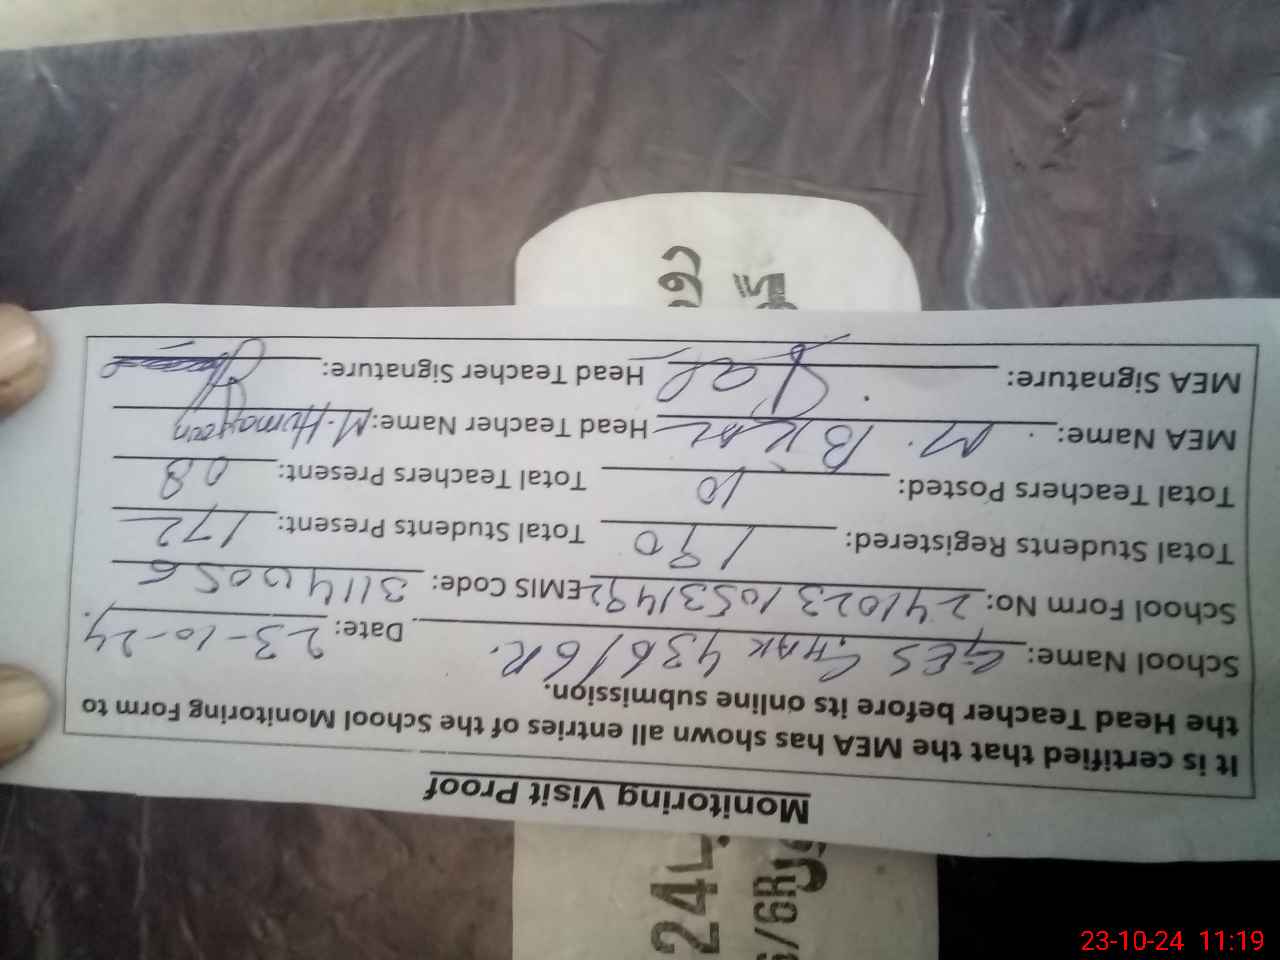 Monitoring Visit Proof
It is certified that the MEA has shown all entries of the School Monitoring Form to
the Head Teacher before its online submission.
School Name: GES CHAK 436/6R. Date: 23-10-24.
School Form No: 24102310531492 EMIS Code: 31140056
Total Students Registered: 190 Total Students Present: 172
Total Teachers Posted: 10 Total Teachers Present: 08
MEA Name: M. Head Teacher Name: M. Humayoun
MEA Signature: Head Teacher Signature:
24L
/6R
23-10-24 11:19